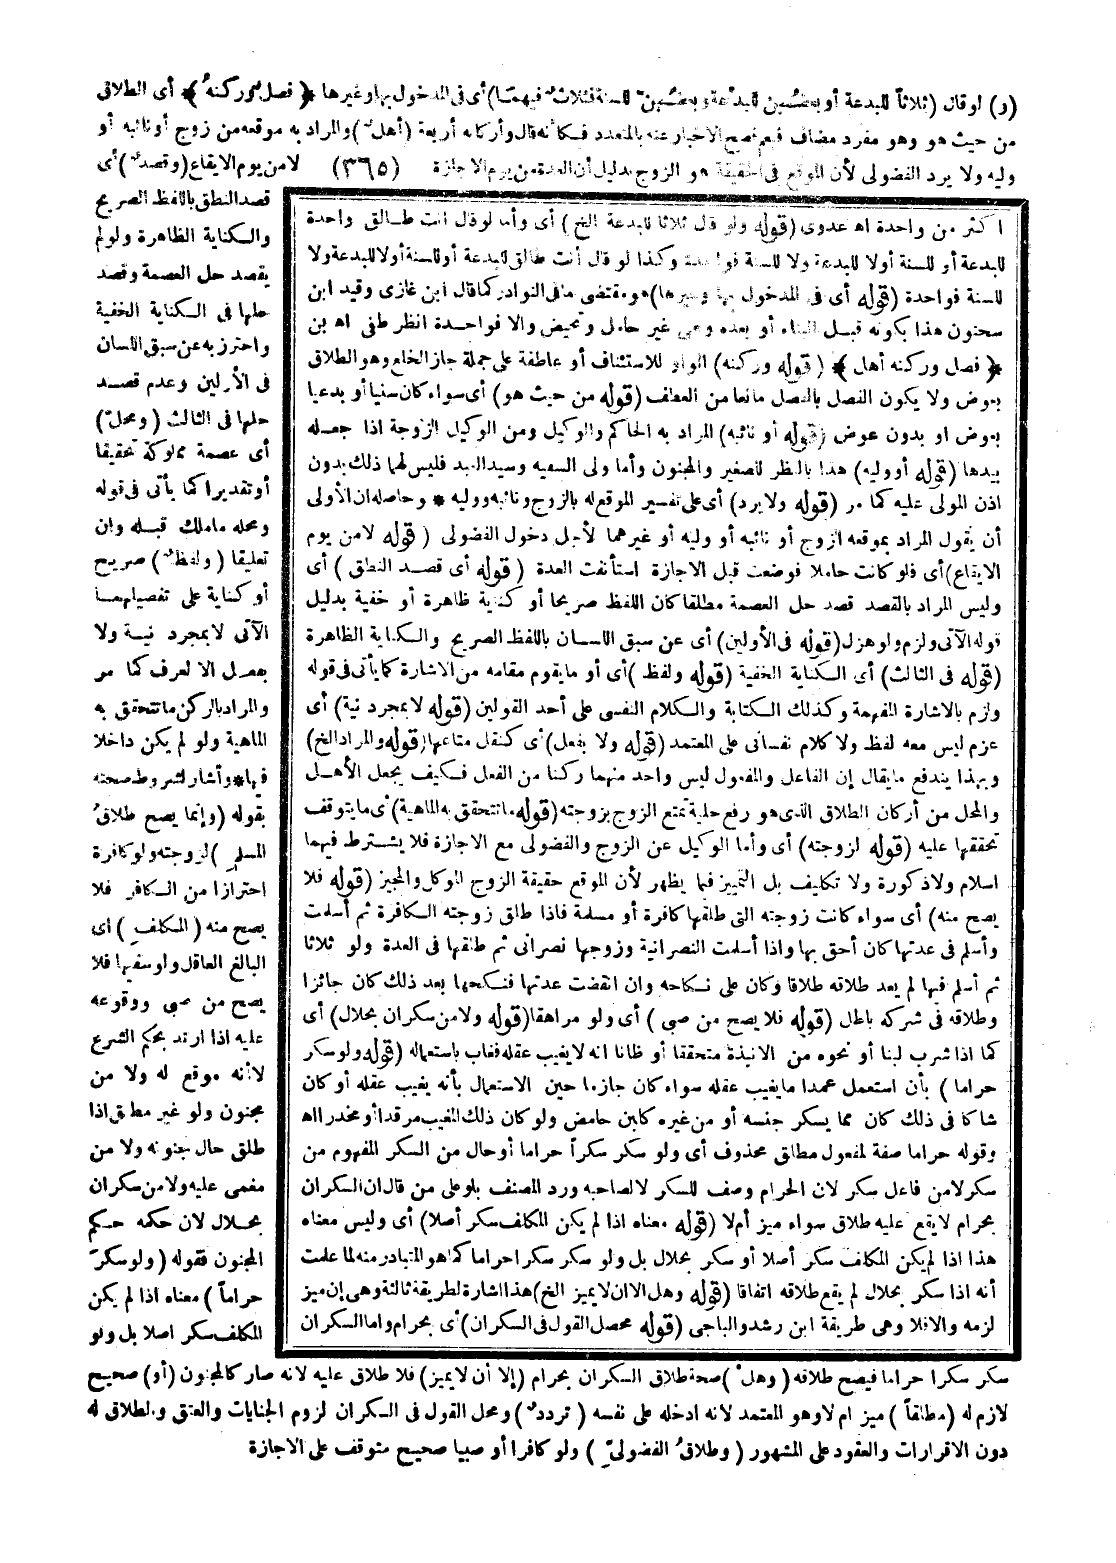 (و) لو قال (ثلاثاً للبدعة أو بعضُهن للبدعة وبعضُهن للسنة فثلاثٌ فيهما) أى فى المدخول بها وغيرها ﴿ فصل ورُكنُهُ ﴾ أى الطلاق
من حيث هو وهو مفرد مضاف فيعم فصح الاخبار عنه بالمتعدد فكأنه قال وأركانه أربعة (أهلٌ) والمراد به موقعه من زوج أو نائبه أو
وليه ولا يرد الفضولى لأن الموقع فى الحقيقة هو الزوج بدليل أن العدة من يوم الاجازة (٣٦٥) لا من يوم الايقاع (وقصدٌ) أى
قصد النطق باللفظ الصريح
والكناية الظاهرة ولو لم
يقصد حل العصمة وقصد
حلها فى الكناية الخفية
واحترز به عن سبق اللسان
فى الأولين وعدم قصد
حلها فى الثالث (ومحلٌ)
أى عصمة مملوكة تحقيقا
أو تقديرا كما يأتى فى قوله
ومحله ما ملك قبله وان
تعليقا (ولفظٌ) صريح
أو كناية على تفصيلهما
الآتى لا بمجرد نية ولا
بفعل الا لعرف كما مر
والمراد بالركن ما تتحقق به
الماهية ولو لم يكن داخلا
فيها * وأشار لشروط صحته
بقوله (وإنما يصح طلاقُ
المسلمِ) لزوجته ولو كافرة
احترازا من الكافر فلا
يصح منه (المكلفِ) أى
البالغ العاقل ولو سفيها فلا
يصح من صبى ووقوعه
عليه اذا ارتد بحكم الشرع
لا أنه موقع له ولا من
مجنون ولو غير مطبق اذا
طلق حال جنونه ولا من
مغمى عليه ولا من سكران
بحلال لان حكمه حكم
المجنون فقوله (ولو سكرَ
حراماً) معناه اذا لم يكن
المكلف سكر اصلا بل ولو
سكر سكرا حراما فيصح طلاقه (وهلْ) صحة طلاق السكران بحرام (إلا أن لا يميز) فلا طلاق عليه لانه صار كالمجنون (أو) صحيح
لازم له (مطلقاً) ميز ام لا وهو المعتمد لانه ادخله على نفسه (ترددٌ) ومحل القول فى السكران لزوم الجنايات والعتق والطلاق له
دون الاقرارات والعقود على المشهور (وطلاقُ الفضولىِّ) ولو كافرا أو صبيا صحيح متوقف على الاجازة
اكثر من واحدة اه عدوى (قوله ولو قال ثلاثا للبدعة الخ) أى وأما لو قال انت طالق واحدة
للبدعة أو للسنة أو لا للبدعة ولا للسنة فواحدة وكذا لو قال أنت طالق للبدعة أو للسنة أو لا للبدعة ولا
للسنة فواحدة (قوله أى فى المدخول بها وغيرها) هو مقتضى ما فى النوادر كما قال ابن غازى وقيد ابن
سحنون هذا بكونه قبل البناء أو بعده وهى غير حامل وتحيض والا فواحدة انظر طفى اه بن
﴿ فصل وركنه أهل ﴾ (قوله وركنه) الواو للاستئناف أو عاطفة على جملة جاز الخلع وهو الطلاق
بعوض ولا يكون الفصل بالفصل مانعا من العطف (قوله من حيث هو) أى سواء كان سنيا أو بدعيا
بعوض او بدون عوض (قوله أو نائبه) المراد به الحاكم والوكيل ومن الوكيل الزوجة اذا جعله
بيدها (قوله أو وليه) هذا بالنظر للصغير والمجنون وأما ولى السفيه وسيد العبد فليس لهما ذلك بدون
اذن المولى عليه كما مر (قوله ولا يرد) أى على تفسير الموقع له بالزوج ونائبه ووليه * وحاصله ان الأولى
أن يقول المراد بموقعه الزوج أو نائبه أو وليه أو غيرهما لأجل دخول الفضولى (قوله لا من يوم
الايقاع) أى فلو كانت حاملا فوضعت قبل الاجازة استأنفت العدة (قوله أى قصد النطق) أى
وليس المراد بالقصد قصد حل العصمة مطلقا كان اللفظ صريحا أو كناية ظاهرة أو خفية بدليل
قوله الآتى ولزم ولو هزل (قوله فى الأولين) أى عن سبق اللسان باللفظ الصريح والكناية الظاهرة
(قوله فى الثالث) أى الكناية الخفية (قوله ولفظ) أى أو ما يقوم مقامه من الاشارة كما يأتى فى قوله
ولزم بالاشارة المفهمة وكذلك الكتابة والكلام النفسى على أحد القولين (قوله لا بمجرد نية) أى
عزم ليس معه لفظ ولا كلام نفسانى على المعتمد (قوله ولا بفعل) أى كنقل متاعها (قوله والمراد الخ)
وبهذا يندفع ما يقال إن الفاعل والمفعول ليس واحد منهما ركنا من الفعل فكيف يجعل الأهل
والمحل من أركان الطلاق الذى هو رفع حلية تمتع الزوج بزوجته (قوله ما تتحقق به الماهية) أى ما يتوقف
تحققها عليه (قوله لزوجته) أى وأما الوكيل عن الزوج والفضولى مع الاجازة فلا يشترط فيهما
اسلام ولا ذكورة ولا تكليف بل التمييز فيما يظهر لأن الموقع حقيقة الزوج الموكل والمجيز (قوله فلا
يصح منه) أى سواء كانت زوجته التى طلقها كافرة أو مسلمة فاذا طلق زوجته الكافرة ثم أسلمت
وأسلم فى عدتها كان أحق بها واذا أسلمت النصرانية وزوجها نصرانى ثم طلقها فى العدة ولو ثلاثا
ثم أسلم فيها لم يعد طلاقه طلاقا وكان على نكاحه وان انقضت عدتها فنكحها بعد ذلك كان جائزا
وطلاقه فى شركه باطل (قوله فلا يصح من صبى) أى ولو مراهقا (قوله ولا من سكران بحلال) أى
كما اذا شرب لبنا أو نحوه من الانبذة متحققا أو ظانا انه لا يغيب عقله فغاب باستعماله (قوله ولو سكر
حراما) بأن استعمل عمدا ما يغيب عقله سواء كان جازما حين الاستعمال بأنه يغيب عقله أو كان
شاكا فى ذلك كان مما يسكر جنسه أو من غيره كلبن حامض ولو كان ذلك المغيب مرقدا أو مخدرا اه
وقوله حراما صفة لمفعول مطلق محذوف أى ولو سكر سكراً حراما أو حال من السكر المفهوم من
سكر لا من فاعل سكر لان الحرام وصف للسكر لا لصاحبه ورد المصنف بلو على من قال ان السكران
بحرام لا يقع عليه طلاق سواء ميز أم لا (قوله معناه اذا لم يكن المكلف سكر أصلا) أى وليس معناه
هذا اذا لم يكن المكلف سكر أصلا أو سكر بحلال بل ولو سكر سكرا حراما كما هو المتبادر منه لما علمت
أنه اذا سكر بحلال لم يقع طلاقه اتفاقا (قوله وهل الا ان لا يميز الخ) هذا اشارة لطريقة ثالثة وهى إن ميز
لزمه والا فلا وهى طريقة ابن رشد والباجى (قوله محصل القول فى السكران) أى بحرام واما السكران